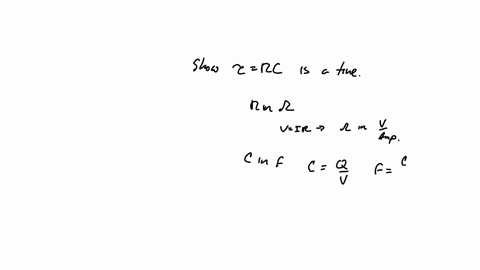 Show τ = RC is a time.
R in Ω
V = IR → Ω in V/Amp.
C in F C = Q/V F = C